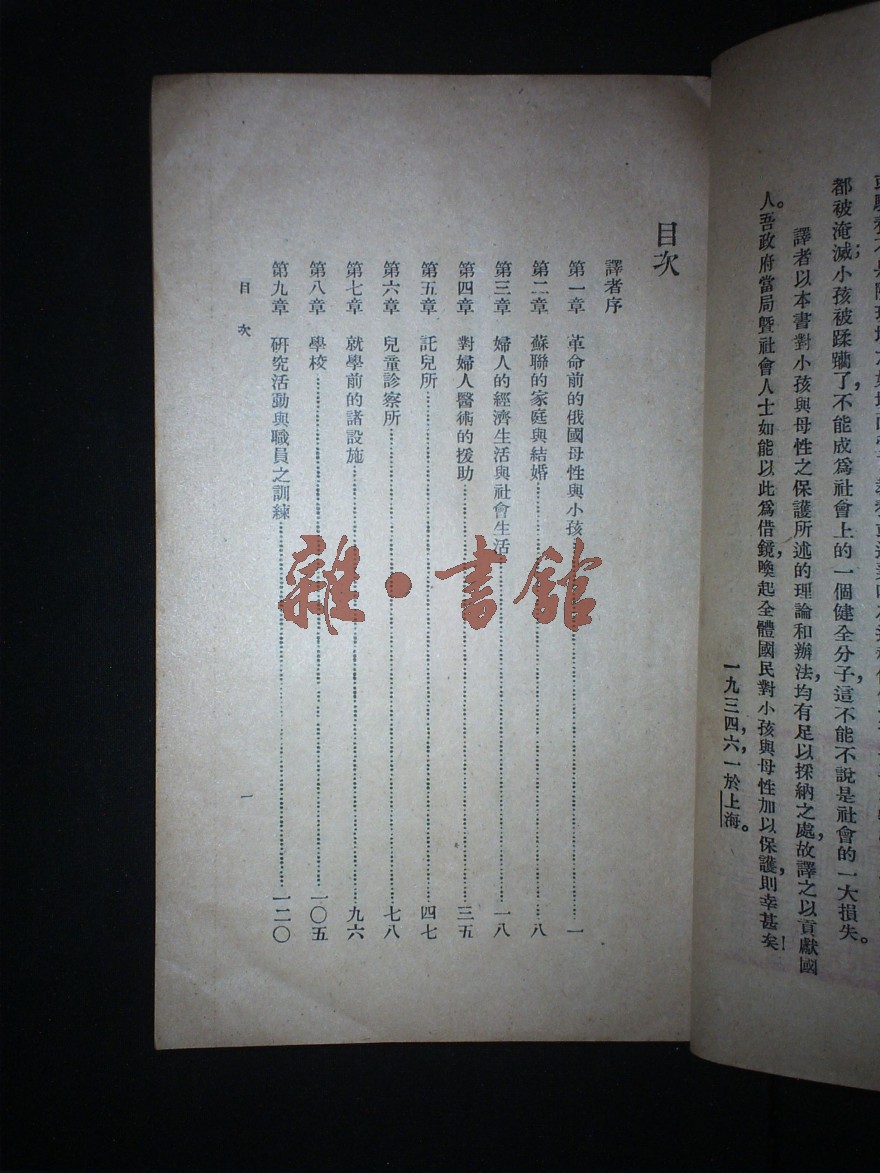 都被淹滅；小孩被蹂躪了，不能成爲社會上的一個健全分子，這不能不說是社會的一大損失。
譯者以本書對小孩與母性之保護所述的理論和辦法，均有足以採納之處，故譯之以貢獻國
人。吾政府當局曁社會人士如能以此爲借鏡，喚起全體國民對小孩與母性加以保護，則幸甚矣！
一九三四，六，一於上海。
目次
譯者序
第一章 革命前的俄國母性與小孩 一
第二章 蘇聯的家庭與結婚 八
第三章 婦人的經濟生活與社會生活 一八
第四章 對婦人醫術的援助 三五
第五章 託兒所 四七
第六章 兒童診察所 七八
第七章 就學前的諸設施 九六
第八章 學校 一〇五
第九章 研究活動與職員之訓練 一二〇
目次 一
雜·書館